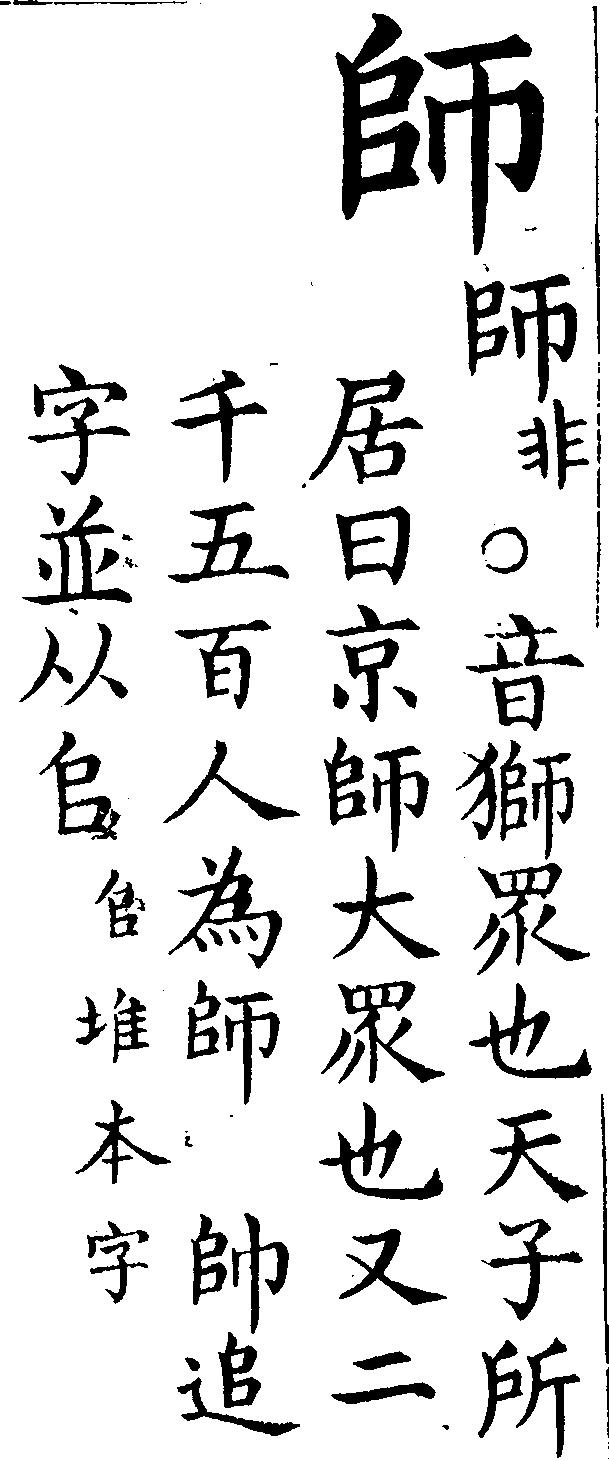 師
師非○音獅眾也天子所
居曰京師大眾也又二
千五百人為師　帥追
字並从𠂤
𠂤堆本字